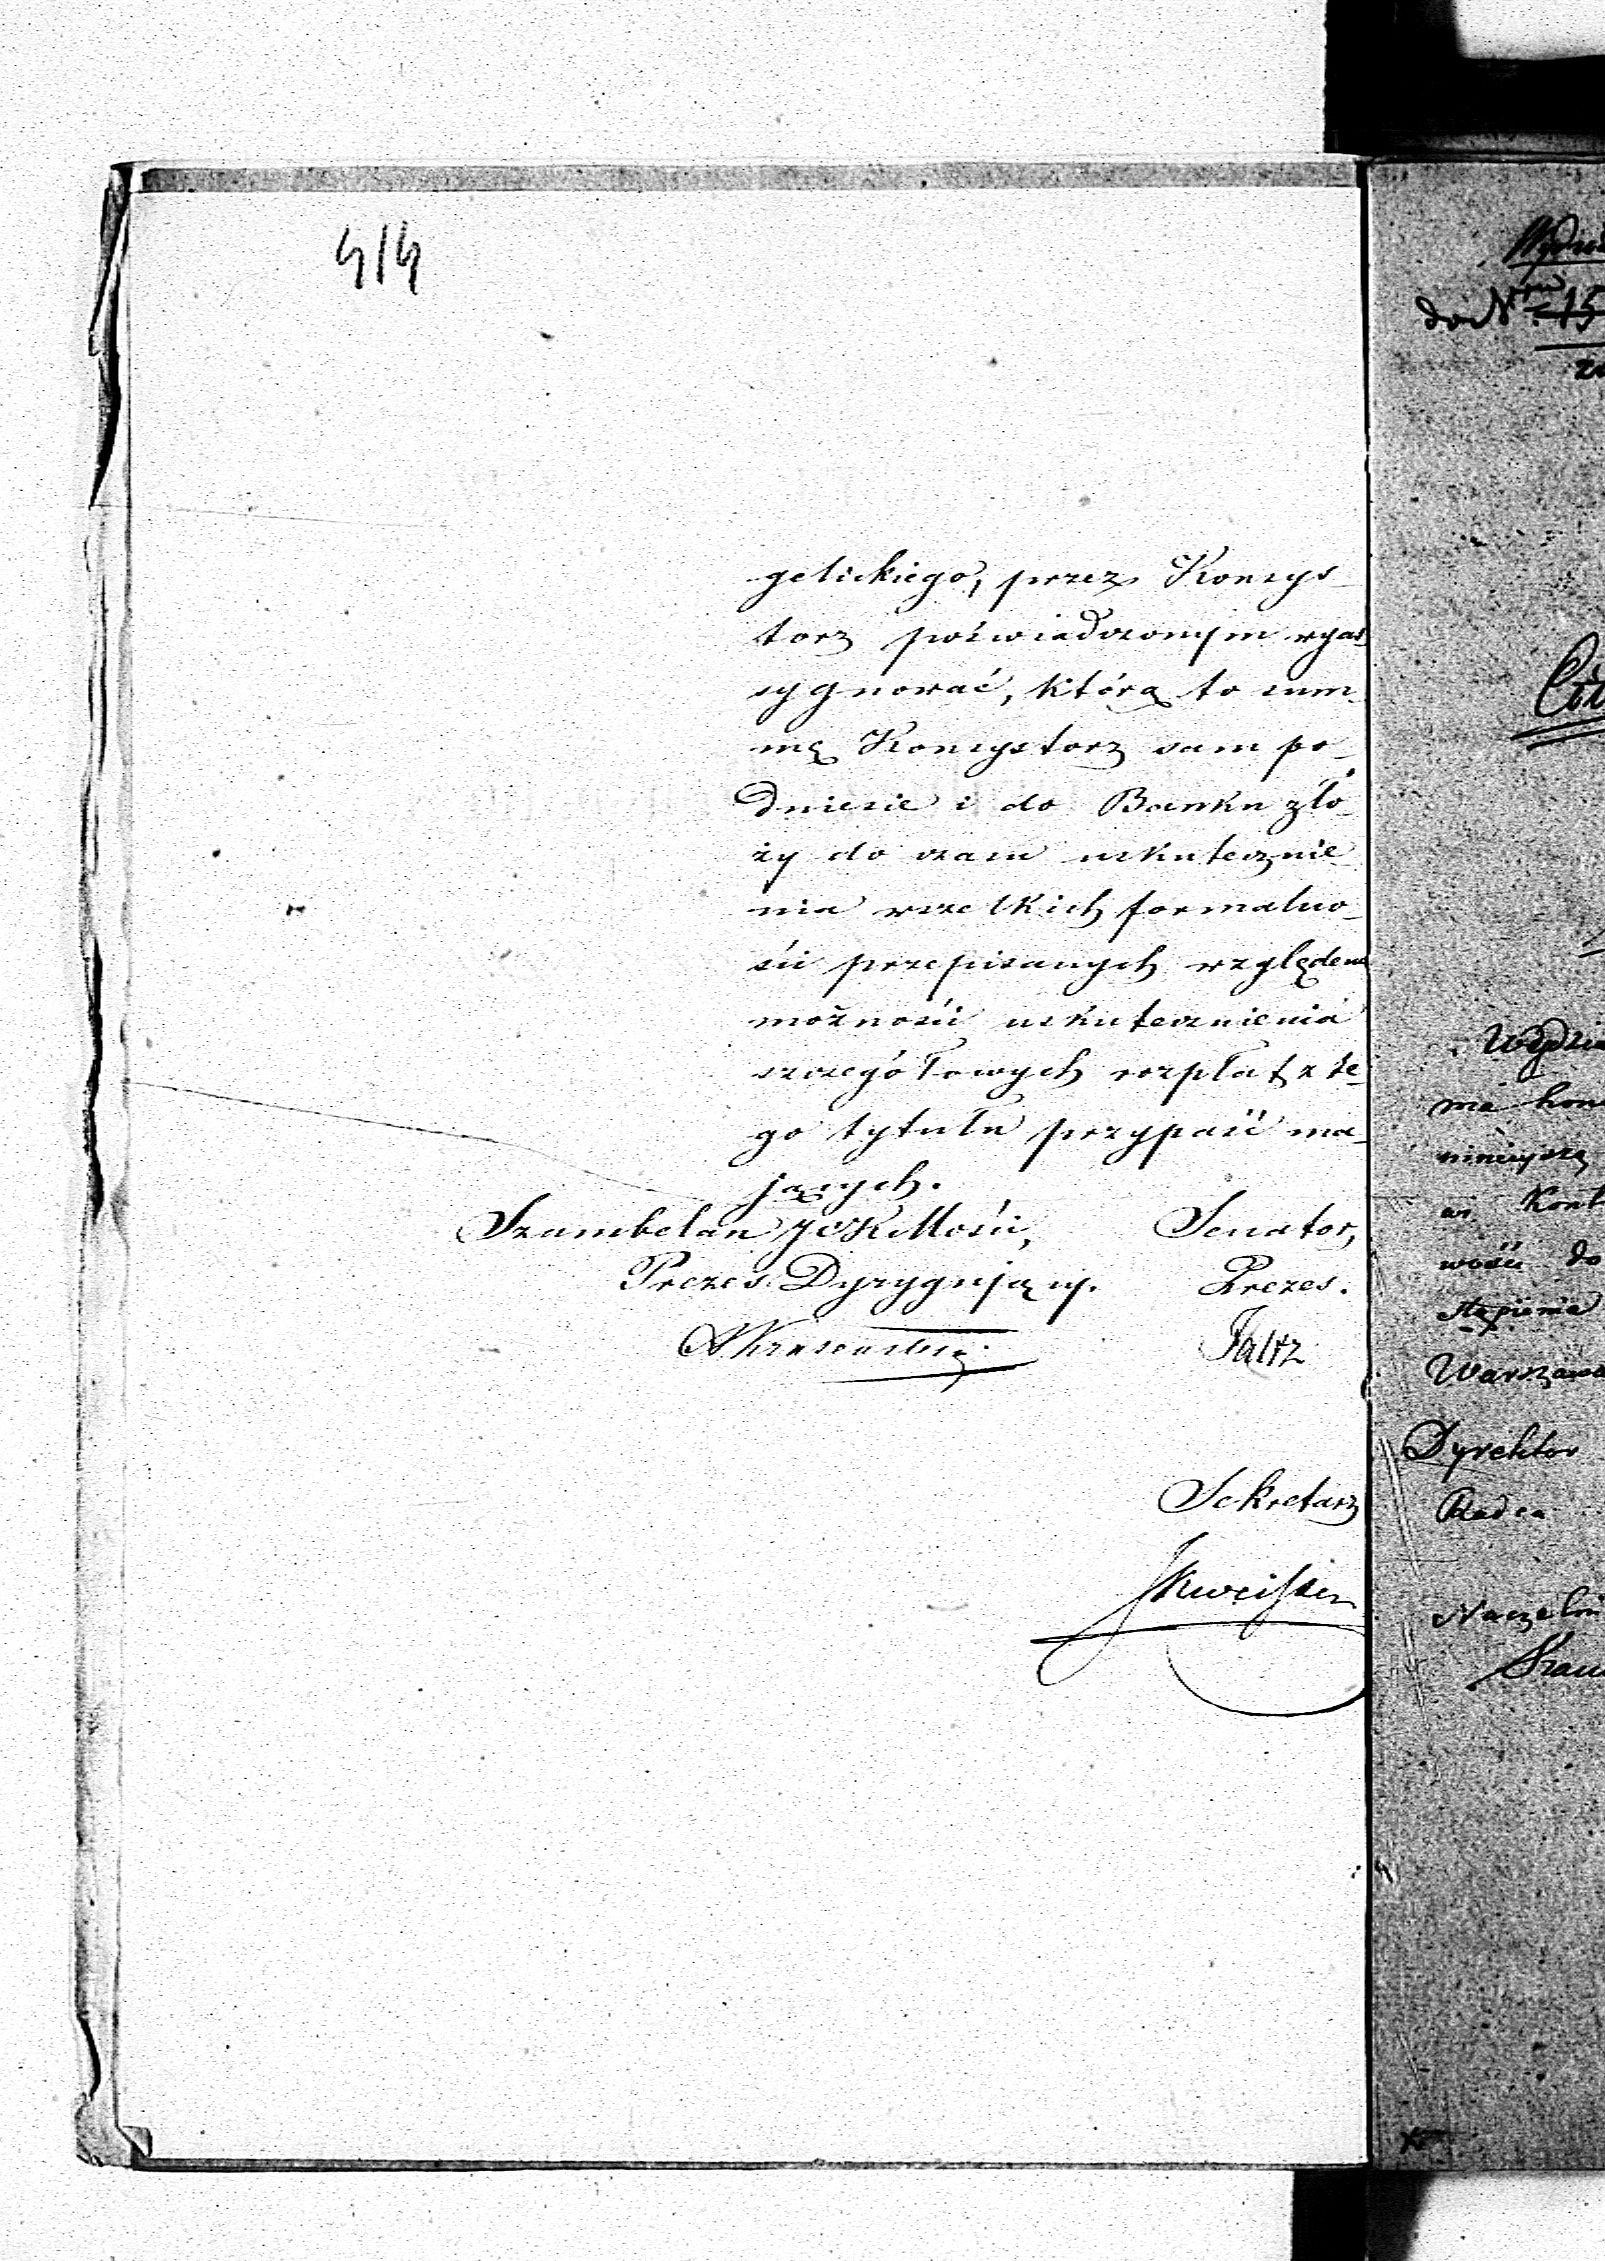 414
gelickiego, przez Konsys-
torz poświadczonym wyas-
sygnować, którą to sum-
mę Konsystorz sam po-
dniesie i do Banku zło-
ży do czasu uskutecznie-
nia wszelkich formalno-
ści przepisanych względem
możności uskutecznienia
szczegółowych rozpłat z te-
go tytułu przypaść ma-
jących.
Szambelan JCKMości, Senator,
Prezes Dyrygujący. Prezes.
Faltz
Sekretarz
do Nru 15
Wydzia
ma hon
niniejszą
w Kont
wości do
stąpienia
Warszawa
Dyrektor
Radca
Naczelni